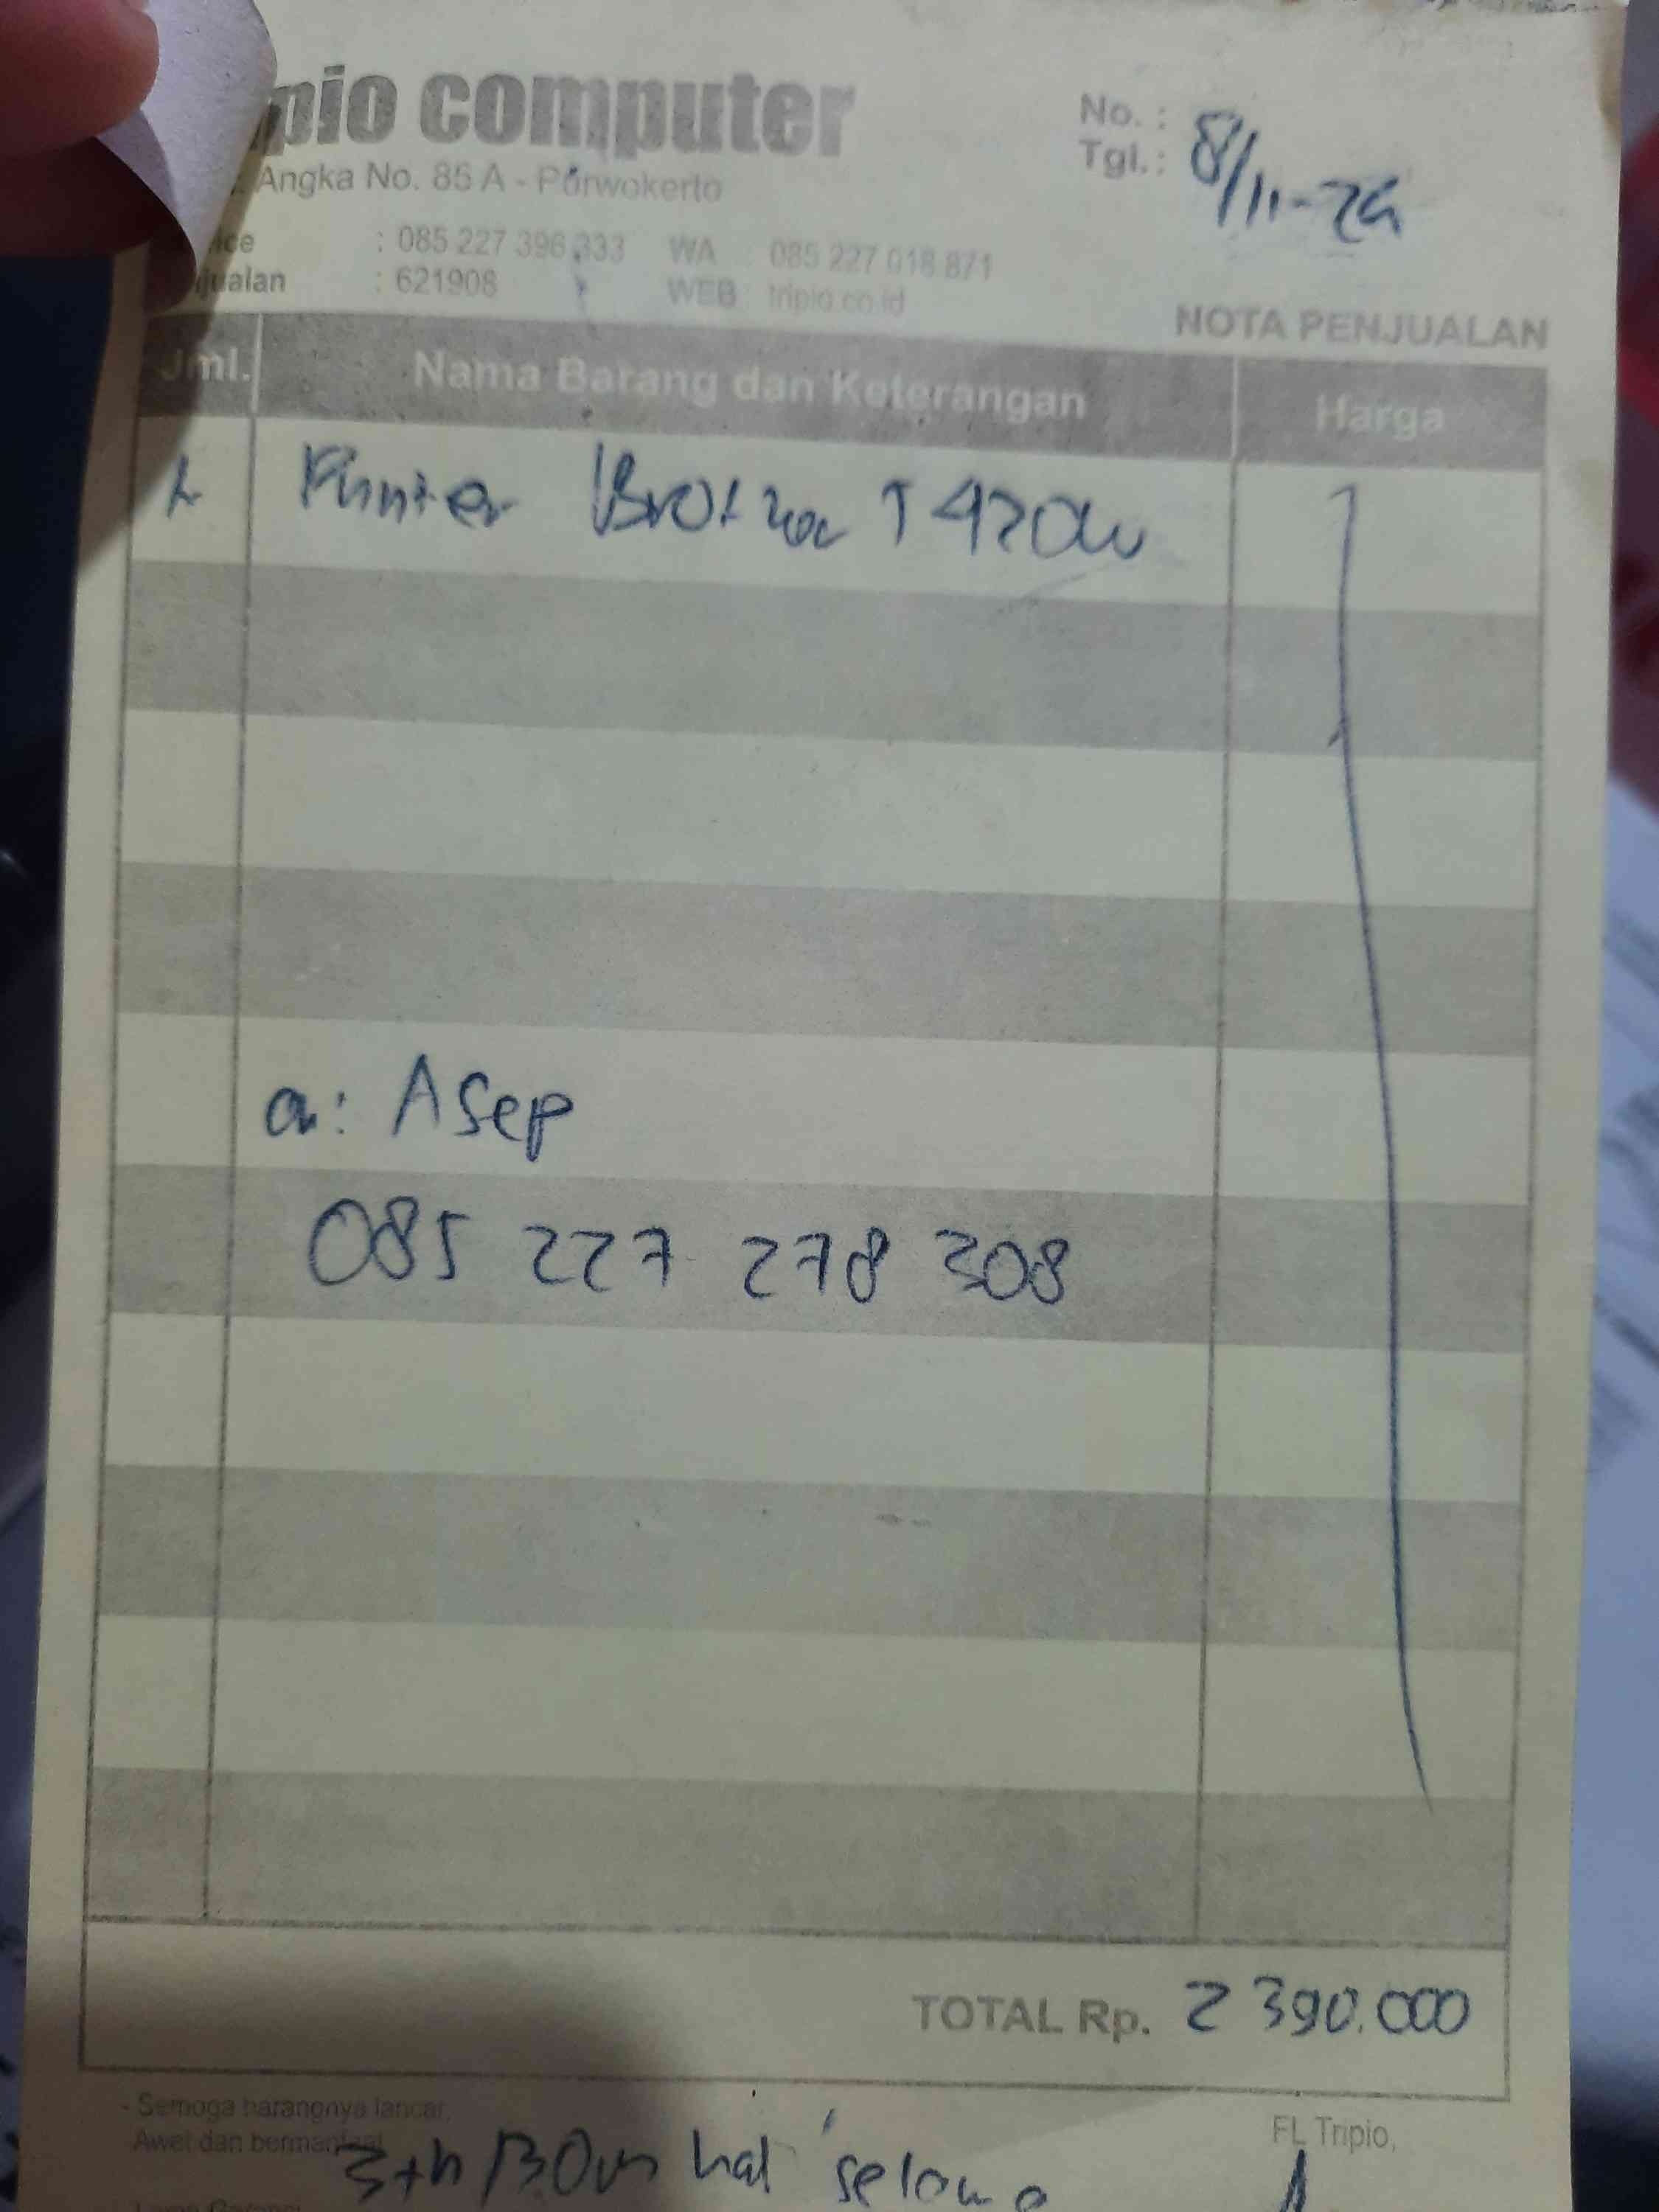 pio computer
Angka No. 85 A - Purwokerto
: 085 227 396 333 WA 085 227 018 871
jualan : 621908 WEB tripio.co.id
No. :
Tgl. : 8/11-24
NOTA PENJUALAN
Jml. Nama Barang dan Keterangan Harga
1 Printer Brother T420w
a: Asep
085 227 278 308
TOTAL Rp. 2 390.000
- Semoga barangnya lancar,
Awet dan bermanfaat
FL Tripio,
3th/30 hal selama